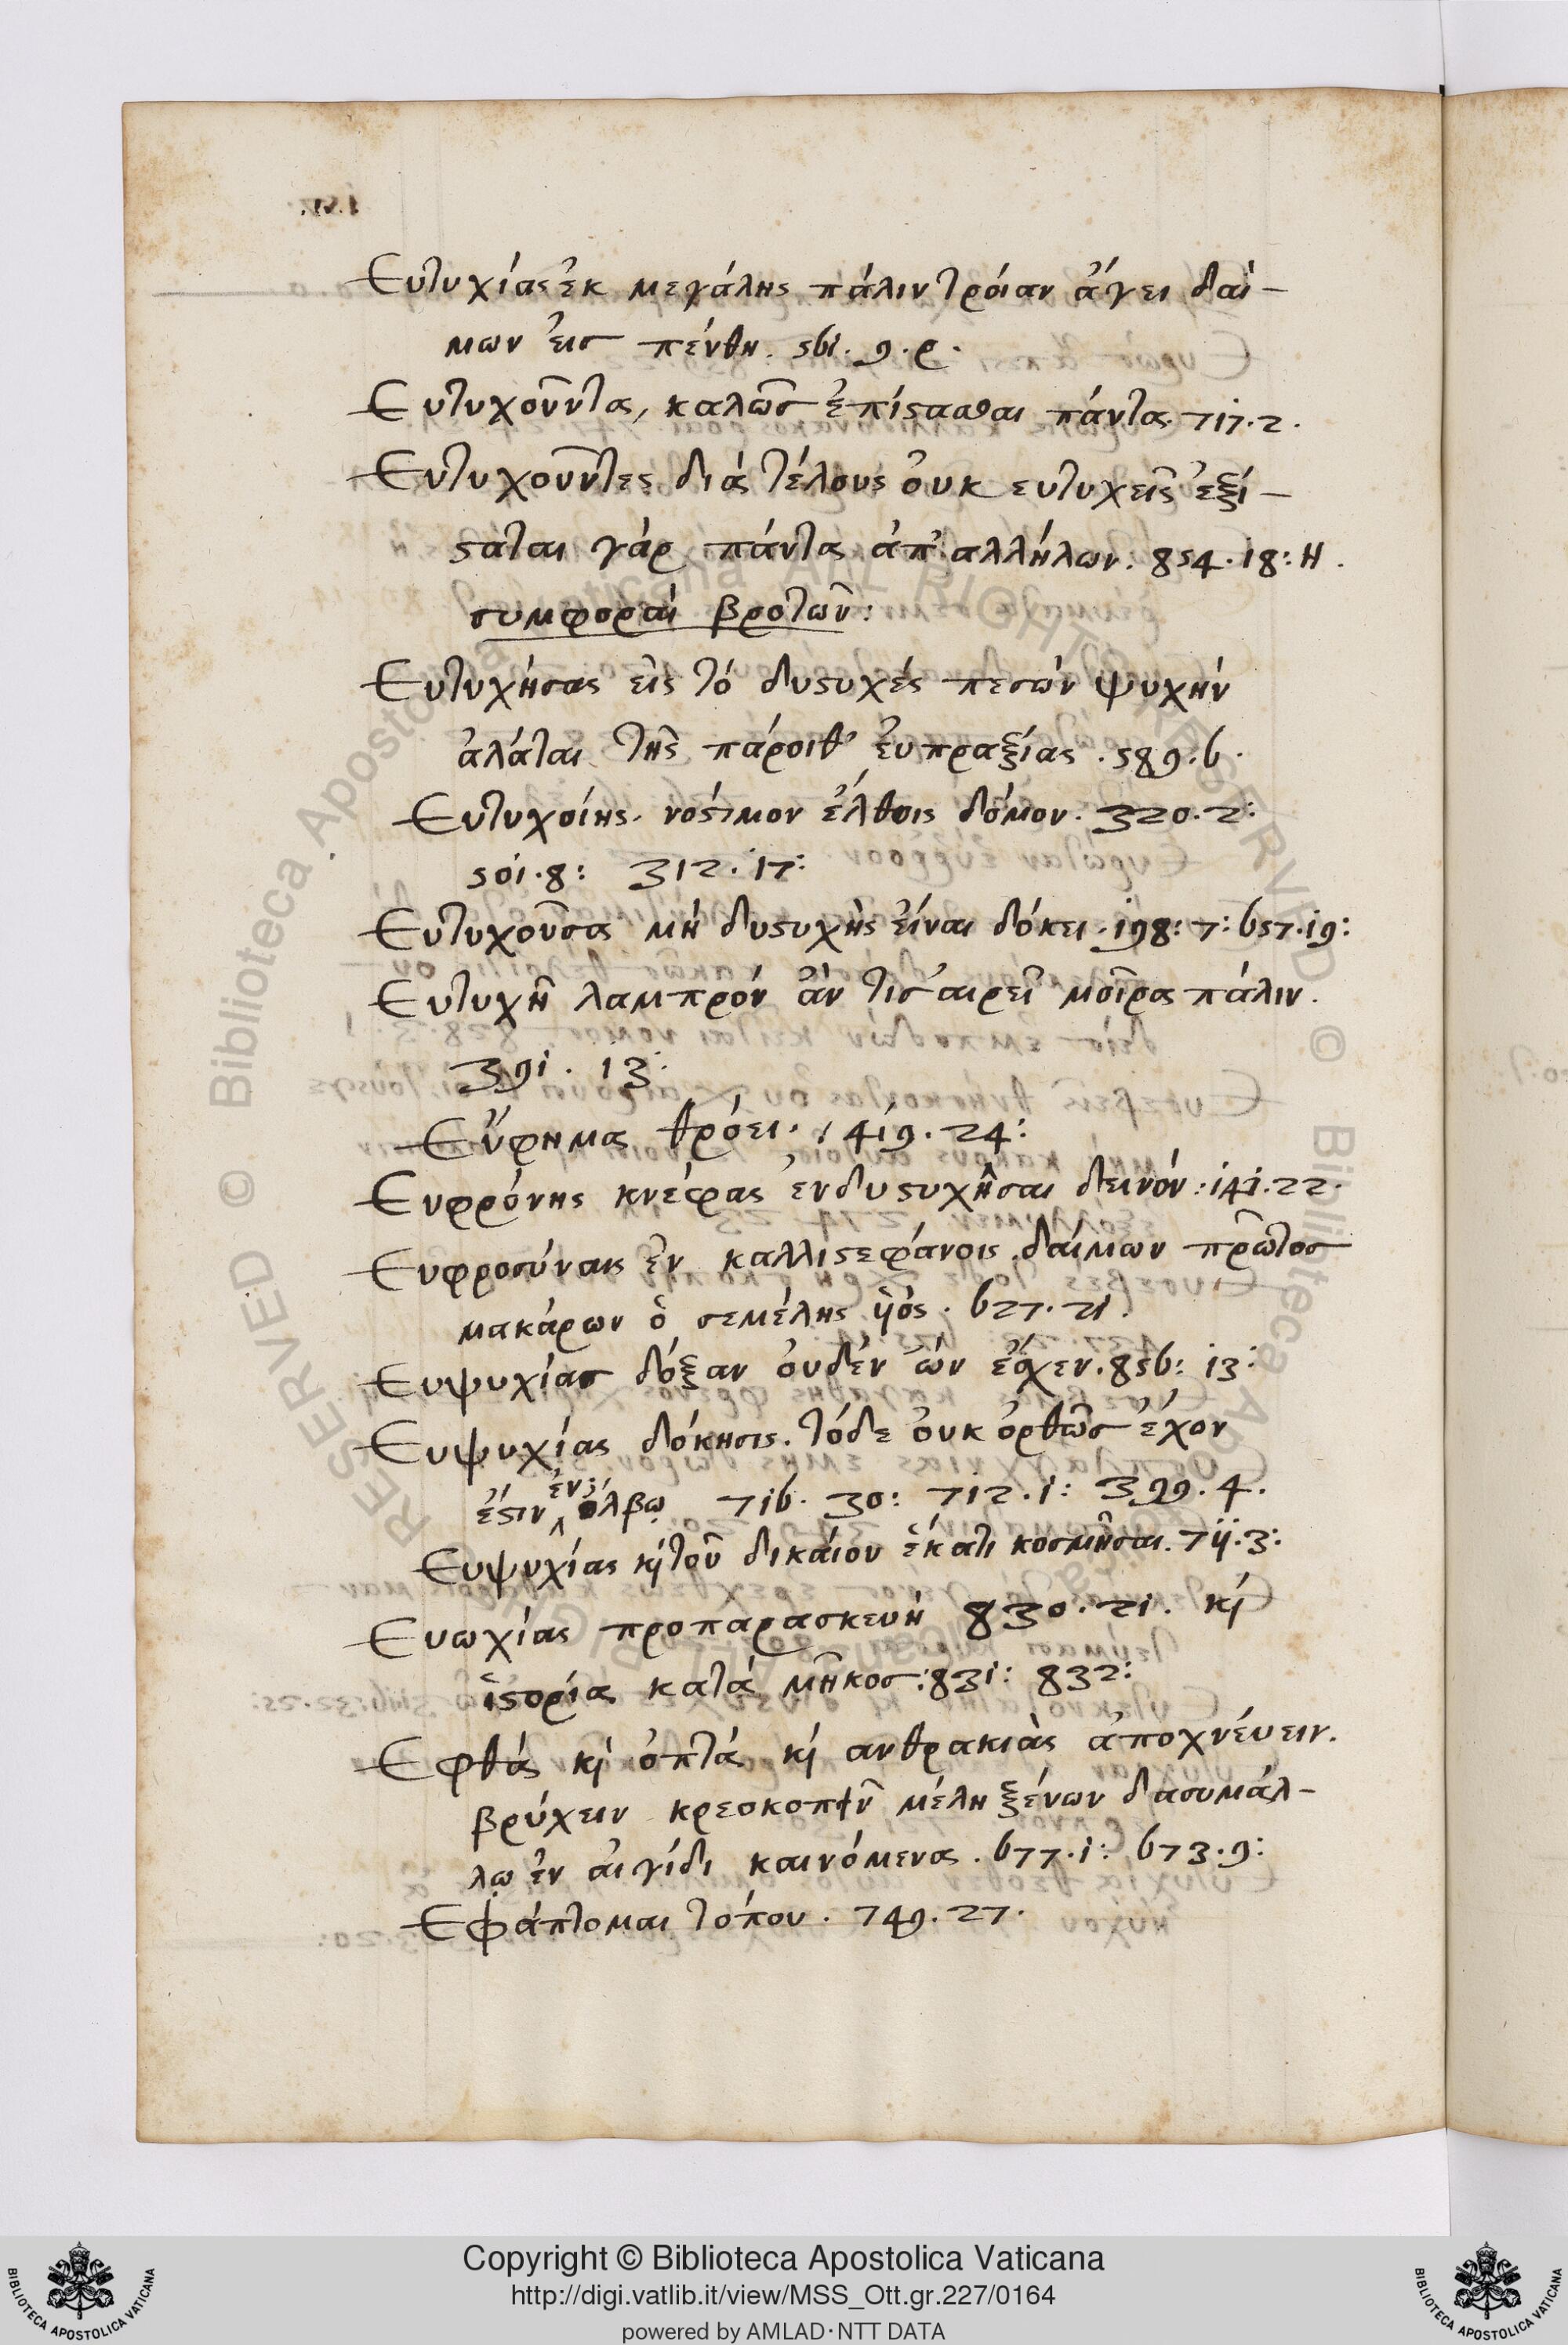 Ευτυχίας ἐκ μεγάλης πάλιν τρόιαν ἄγει δαί-
μων ἐις πένθη. 561. 9. ρ.
Ευτυχοῦντα, καλῶς ἐπίϛασθαι πάντα. 717. 2.
Ευτυχοῦντες διὰ τέλους ὀυκ ευτυχεῖς ἐξί-
ϛαται γὰρ πάντα ἀπ' αλλήλων: 854. 18: Η.
συμφοραὶ βροτῶν:
Ευτυχήσας εἰς τὸ δυϛυχές πεσὼν ψυχὴν
ἀλάται τῆς πάροιθ' ἐυπραξίας. 589. 6.
Ευτυχοίης. νόϛιμον ἔλθοις δόμον. 320. 2:
501. 8: 312. 17:
Ευτυχοῦσα μὴ δυϛυχὴς εἶναι δόκει. 198: 7: 657. 19:
Ευτυχῆ λαμπρόν ἄν τις ἀιρεῖ μοῖρα πάλιν.
391. 13:
Εὔφημα θρόει. 1419. 24:
Ευφρόνης κνέφας ἐνδυϛυχῆσαι δεινόν: 141. 22.
Ευφροσύναις ἐν καλλιϛεφάνοις δαίμων πρῶτος
μακάρων ὁ σεμέλης ϋὸς. 627. 21.
Ευψυχίας δόξαν ὀυδὲν ὢν ἔσχεν. 856: 13:
Ευψυχίας δόκησις. τόδε ὀυκ ὀρθῶς ἔχον
ἔϛιν ἐν ὄλβῳ 716. 30: 712. 1: 399. 4.
Ευψυχίας ϗ τοῦ δικάιου ἕκατι κοσμῆσαι. 711. 3:
Ευωχίας προπαρασκευὴ 830. 21. ϗ
ἱϛορία κατὰ μῆκος: 831: 832:
Εφθὰ ϗ ὀπτὰ ϗ ανθρακιὰς ἀποχνέυειν.
βρύχειν κρεοκοπεῖν μέλη ξένων δασυμάλ-
λῳ ἐν ἀιγίδι καινόμενα. 677. 1: 673. 9:
Εφάπτομαι τόπου. 749. 27.
Copyright © Biblioteca Apostolica Vaticana
http://digi.vatlib.it/view/MSS_Ott.gr.227/0164
powered by AMLAD·NTT DATA